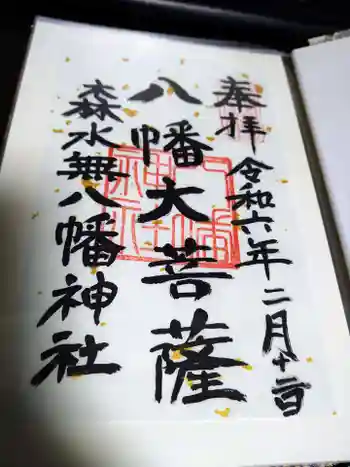 奉拝
令和六年二月十二日
八幡大菩薩
森水無八幡神社